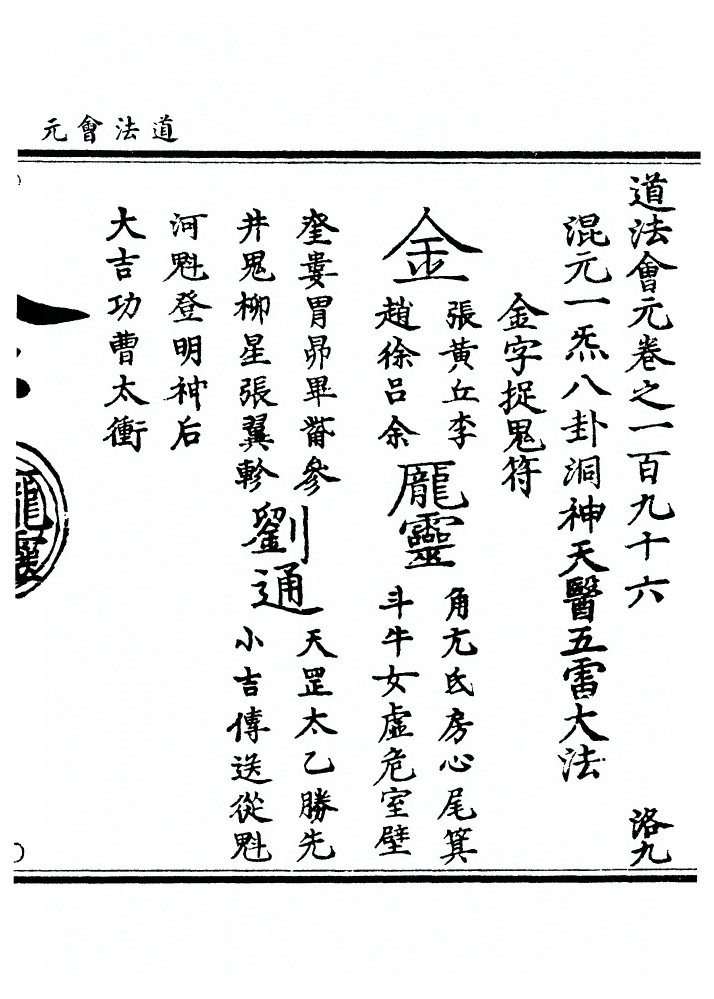 道法會元
道法會元卷之一百九十六
洛九
混元一炁八卦洞神天醫五雷大法
金字捉鬼符
金
張黃丘李
趙徐呂余
龎靈
角亢氐房心尾箕
斗牛女虛危室壁
奎婁胃昴畢觜參
井鬼柳星張翼軫
劉通
天罡太乙勝先
小吉傳送從魁
河魁登明神后
大吉功曹太衝